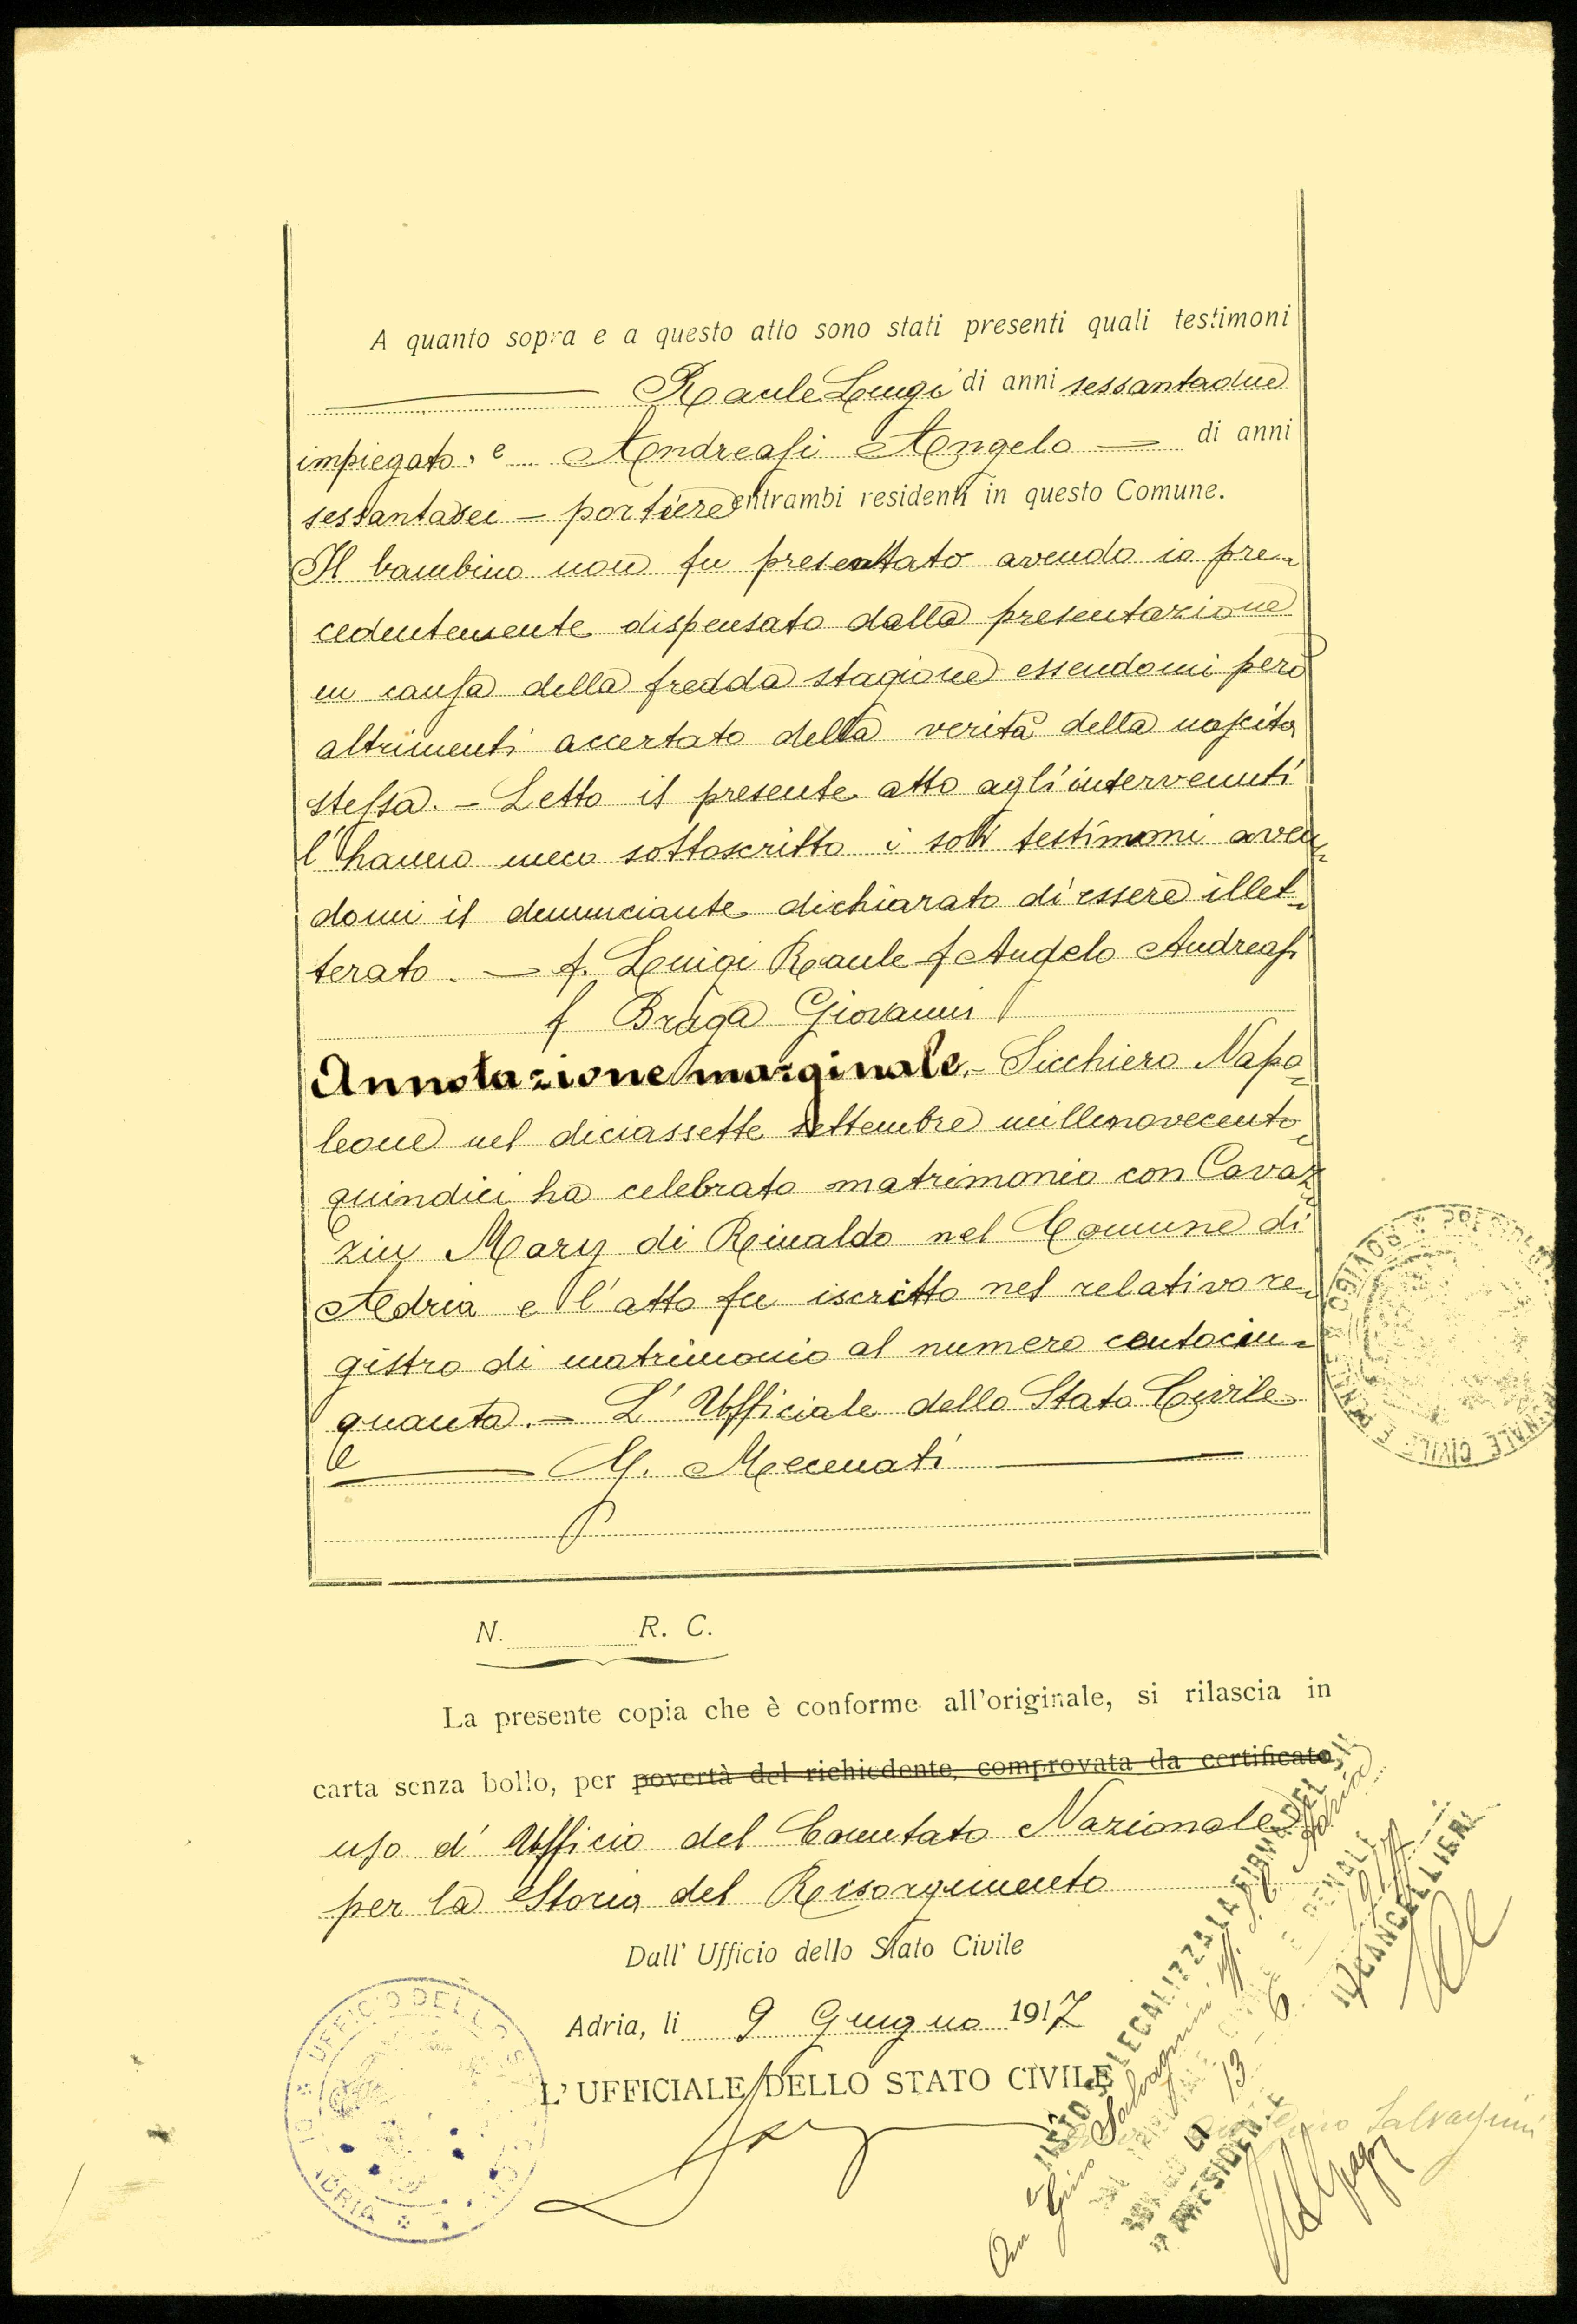 A quanto sopra e a questo atto sono stati presenti quali testimoni
Raule Luigi di anni sessantadue
impiegato, e Andreasi Angelo — di anni
sessantasei — portiere entrambi residenti in questo Comune.
Il bambino non fu presentato avendo io pre-
cedentemente dispensato dalla presentazione
in causa della fredda stagione essendomi però
altrimenti accertato della verità della nascita
stessa. - Letto il presente atto agli intervenuti
l'hanno meco sottoscritto i soli testimoni aven-
domi il denunciante dichiarato di essere illet-
terato. — f. Luigi Raule f Angelo Andreasi
f Braga Giovanni
Annotazione marginale. - Sicchiero Napo-
leone nel diciassette settembre millenovecento-
quindici ha celebrato matrimonio con Cavaz-
zin Mary di Rinaldo nel Comune di
Adria e l'atto fu iscritto nel relativo re-
gistro di matrimonio al numero centocin-
quanta. - L'Ufficiale dello Stato Civile
G. Mecenati
N. R. C.
La presente copia che è conforme all'originale, si rilascia in
carta senza bollo, per povertà del richiedente, comprovata da certificato
uso d'Ufficio del Comitato Nazionale
per la Storia del Risorgimento
Dall' Ufficio dello Stato Civile
Adria, li 9 Giugno 1917
L'UFFICIALE DELLO STATO CIVILE
UFFICIO DELLO S
ADRIA
VISTO SI LEGALIZZA LA FIRMA DEL SI
Gino Salvagnini Uff. S. C. Adria
CIVILE E PENALE
LI 13 - 6 - 1917
IL PRESIDENTE
IL CANCELLIERE
Gino Salvagnini
ROVIGO
CIVILE E PENALE